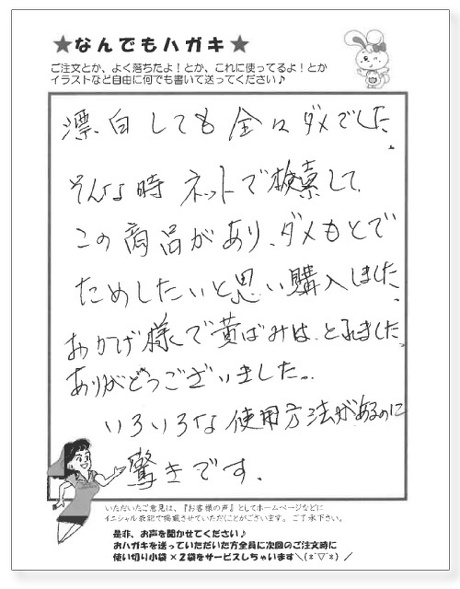 ★なんでもハガキ★
ご注文とか、よく落ちたよ！とか、これに使ってるよ！とか
イラストなど自由に何でも書いて送ってください♪
漂白しても全々ダメでした。
そんな時ネットで検索して
この商品があり、ダメもとで
ためしたいと思い購入しました。
おかげ様で黄ばみは、とれました。
ありがとうございました。
いろいろな使用方法があるのに
驚きです。
いただいたご意見は、『お客様の声』としてホームページなどに
イニシャル表記で掲載させていただくことがございます。ご了承下さい。
是非、お声を聞かせてください♪
おハガキを送っていただいた方全員に次回のご注文時に
使い切り小袋×2袋をサービスしちゃいます＼(*´▽`*)／